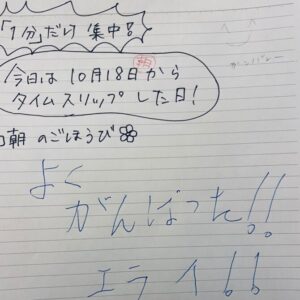 「1分」だけ 集中!!
ガンバレー
今日は 10月18日(朝)から
タイムスリップした日!
朝のごほうび
よく
がんばった!!
エライ!!